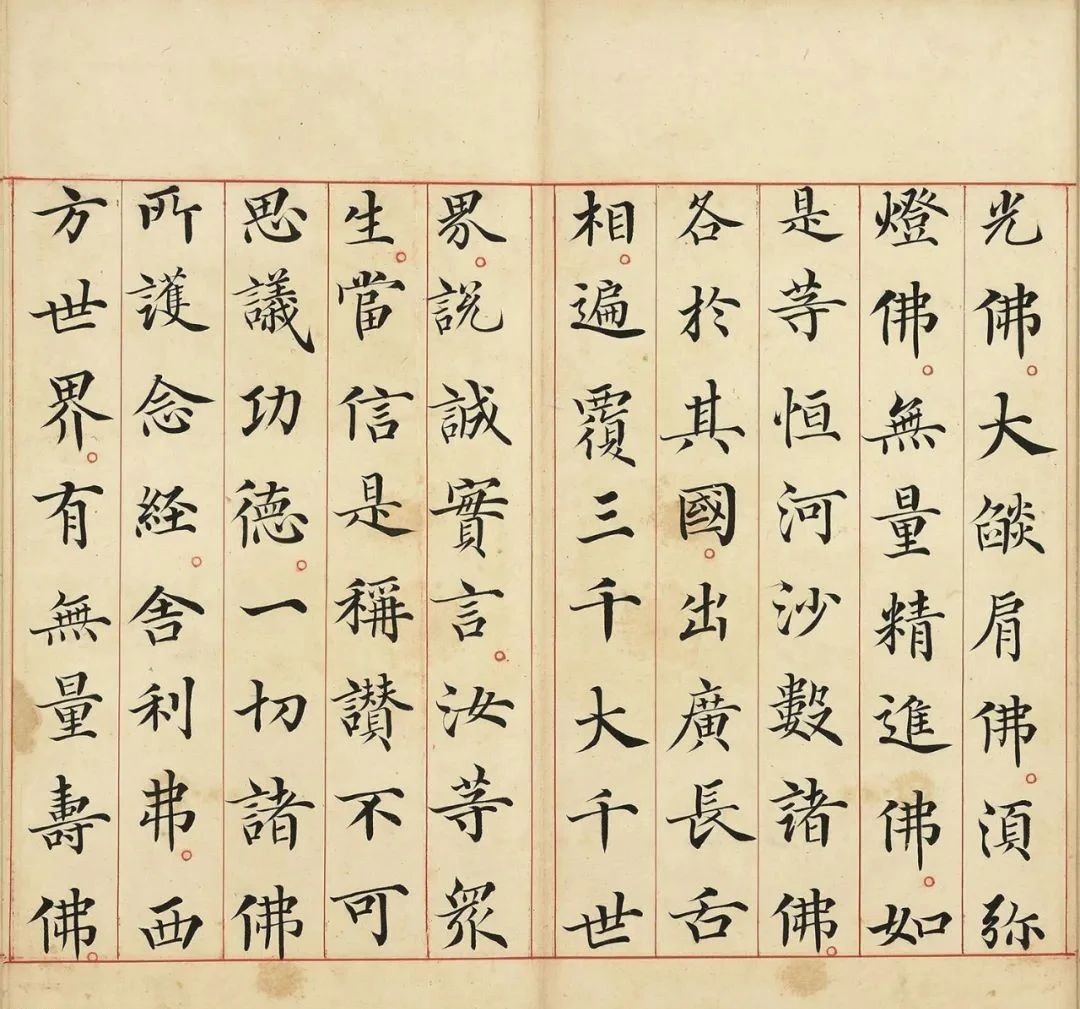 光佛。大燄肩佛。須弥
燈佛。無量精進佛。如
是等恒河沙數諸佛。
各於其國。出廣長舌
相。遍覆三千大千世
界。説誠實言。汝等衆
生。當信是稱讚不可
思議功德。一切諸佛
所護念経。舎利弗。西
方世界。有無量壽佛。